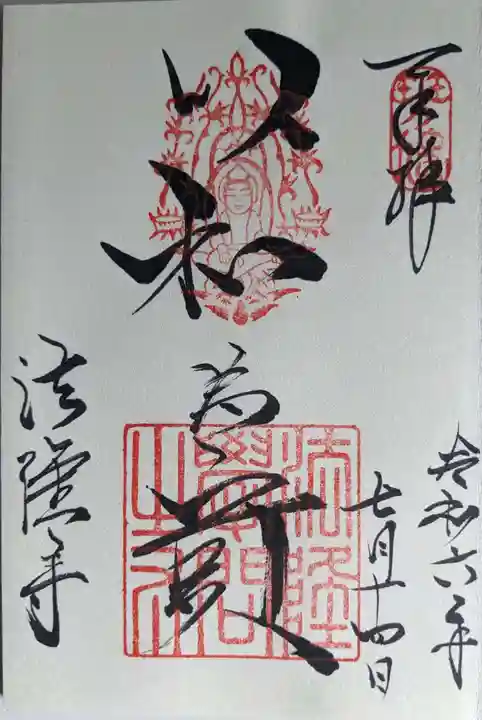 奉拝
令和六年
七月十四日
以和
為貴
法隆寺